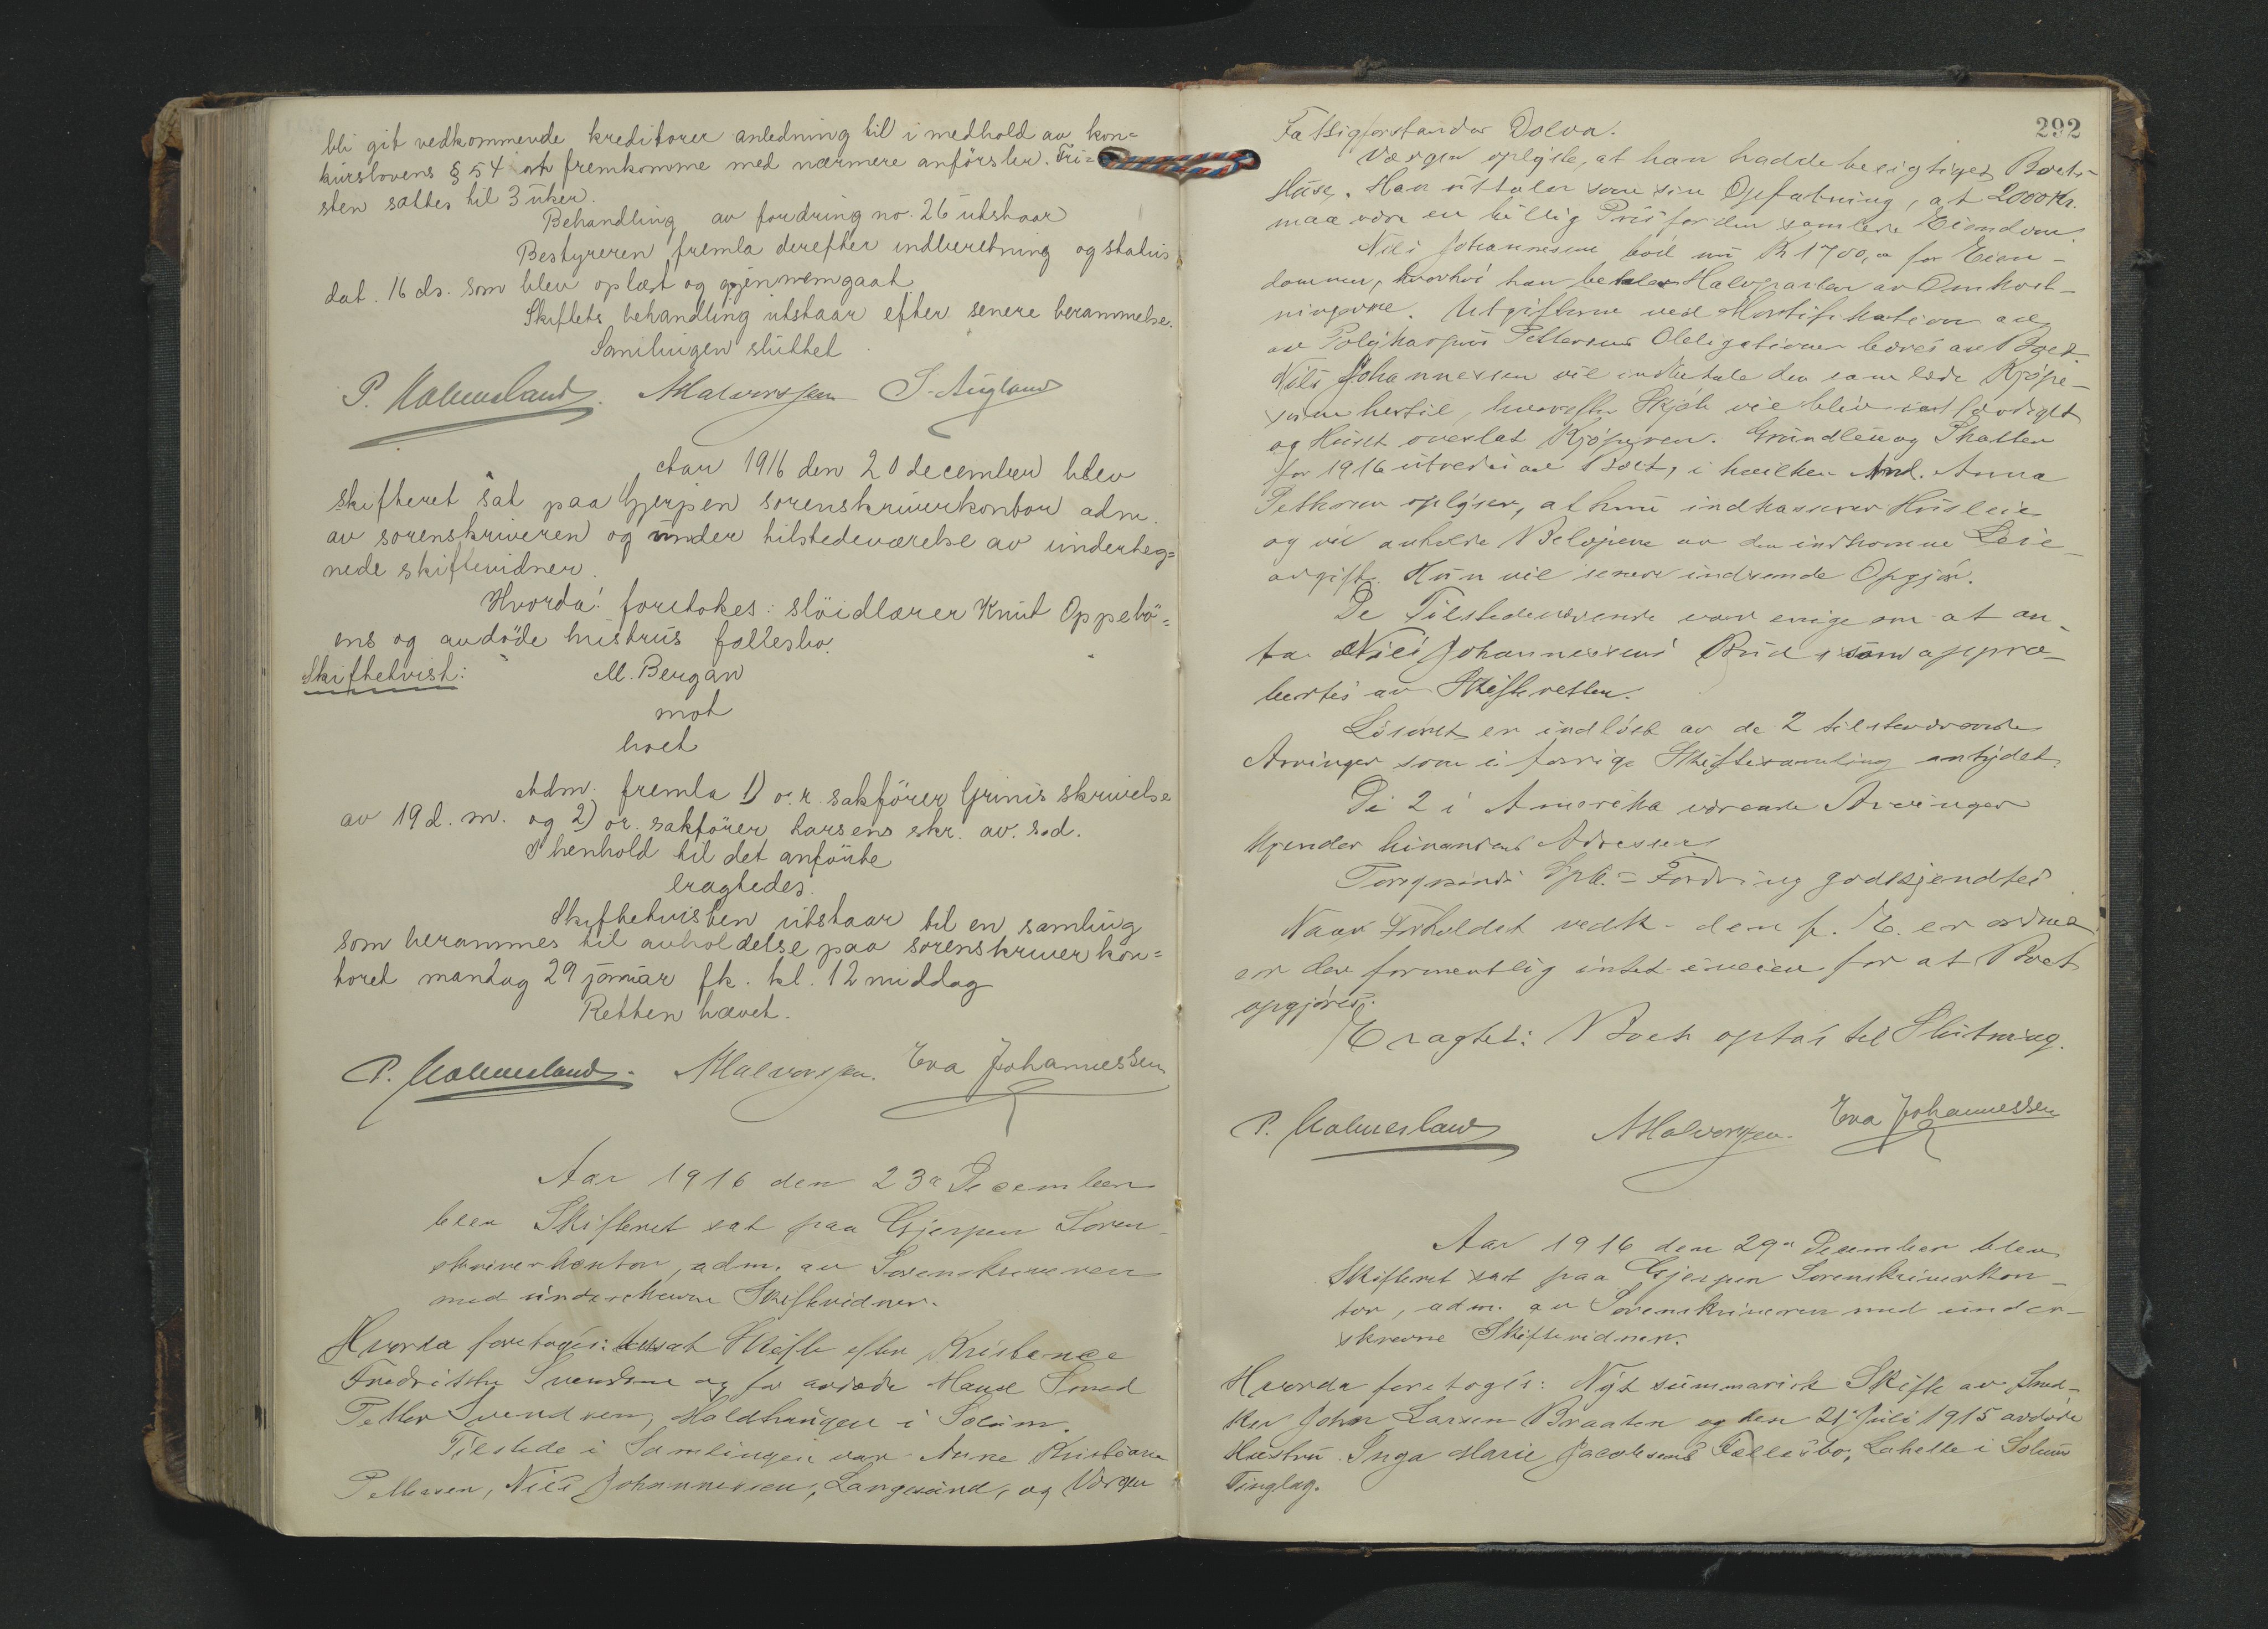 bli git vedkommende kreditorer anledning til i medhold av kon=
kurslovens § 54 at fremkomme med nærmere anførsler. Fri=
sten sattes til 3 uker.
Behandling av fordring no. 26 utstaar
Bestyreren fremla derefter indberetning og status
dat. 16 ds. som blev oplæst og gjennemgaat
Skiftets behandling utstaar efter senere berammelse.
Samlingen sluttet
P. Holmesland. AHalvorsen S. Augland
Aar 1916 den 20 december blev
skifteret sat paa Gjerpen sorenskriverkontor adm.
av sorenskriveren og under tilstedeværelse av underteg=
nede skiftevidner.
Hvorda: foretokes: sløidlærer Knut Oppebø=
ens og avdøde hustrus fællesbo.
Skiftetvist: M. Bergan
mot
boet
Adm. fremla 1) o.r. sakfører Grinis skrivelse
av 19 d. m. og 2) or. sakfører Larsens skr. av. s.d.
I henhold til det anførte
eragtedes.
Skiftetvisten utstaar til en samling
som berammes til avholdelse paa sorenskriverkon=
toret mandag 29 januar fk. kl. 12 middag
Retten hævet.
P. Holmesland. AHalvorsen. Eva Johannessen
Aar 1916 den 23de December
blev Skifteret sat paa Gjerpen Soren-
skriverkontor, adm. av Sorenskriveren
med underskrevne Skiftevidner.
Hvorda foretoges: Skifte efter
Fredrikke Svendsen og før avdøde Mand Smed
Petter Svendsen, i Solum.
Tilstede i Samlingen var Anne Kristiane
Pettersen, Nils Johannessen, Langesund, og Værgen
292
Fattigforstander Dolva.
Værgen oplyste, at han hadde besigtiget Boets
Huse. Han uttaler som sin Opfatning, at 2000 Kr.
maa være en billig Pris for den samlede Eiendom.
Nils Johannesen bød nu Kr 1700,00 for Eien-
dommen, hvorhos han betaler Halvparten av Omkost-
ningerne. Utgifterne ved Mortifikation av
av Polykarpus Pettersens Obligationer bæres av Boet.
Nils Johannessen vil indbetale den samlede Kjøpe-
sum hertil, hvorefter Skjøte vil bli utfærdiget
og Huset overlat Kjøperen. Grundleie og Skatten
for 1916 utredes av Boet, i hvilken Anl. Anna
Pettersen oplyser, at hun indkasserer Husleie
og vil avholde Beløpene av den indkomne Leie-
avgift. Hun vil senere indsende Opgjør.
De Tilstedeværende var enige om at an-
ta Nils Johannessens Bud, som appro-
bertes av Skifteretten.
Løsøret er indløst av de 2 tilstedeværende
Arvinger som i forrige Skiftesamling antydet.
De 2 i Amerika værende Arvinger
kjender hinandens Adresser
Fordring godkjendtes
Naar Forholdet vedk. den er ordnet
er der formentlig intet iveien for at Boet
opgjøres.
Eragtet: Boet optas til Slutning.
P. Holmesland AHalvorsen. Eva Johannessen
Aar 1916 den 29de December blev
Skifteret sat paa Gjerpen Sorenskriverkon-
tor, adm. av Sorenskriveren med under-
skrevne Skiftevidner.
Hvorda foretoges: Nyt summarisk Skifte av Sned-
ker John Larsen Braaten og den 21de Juli 1915 avdøde
Hustru Inga Marie Jacobsens Fællesbo, Lahelle i Solum
Tinglag.